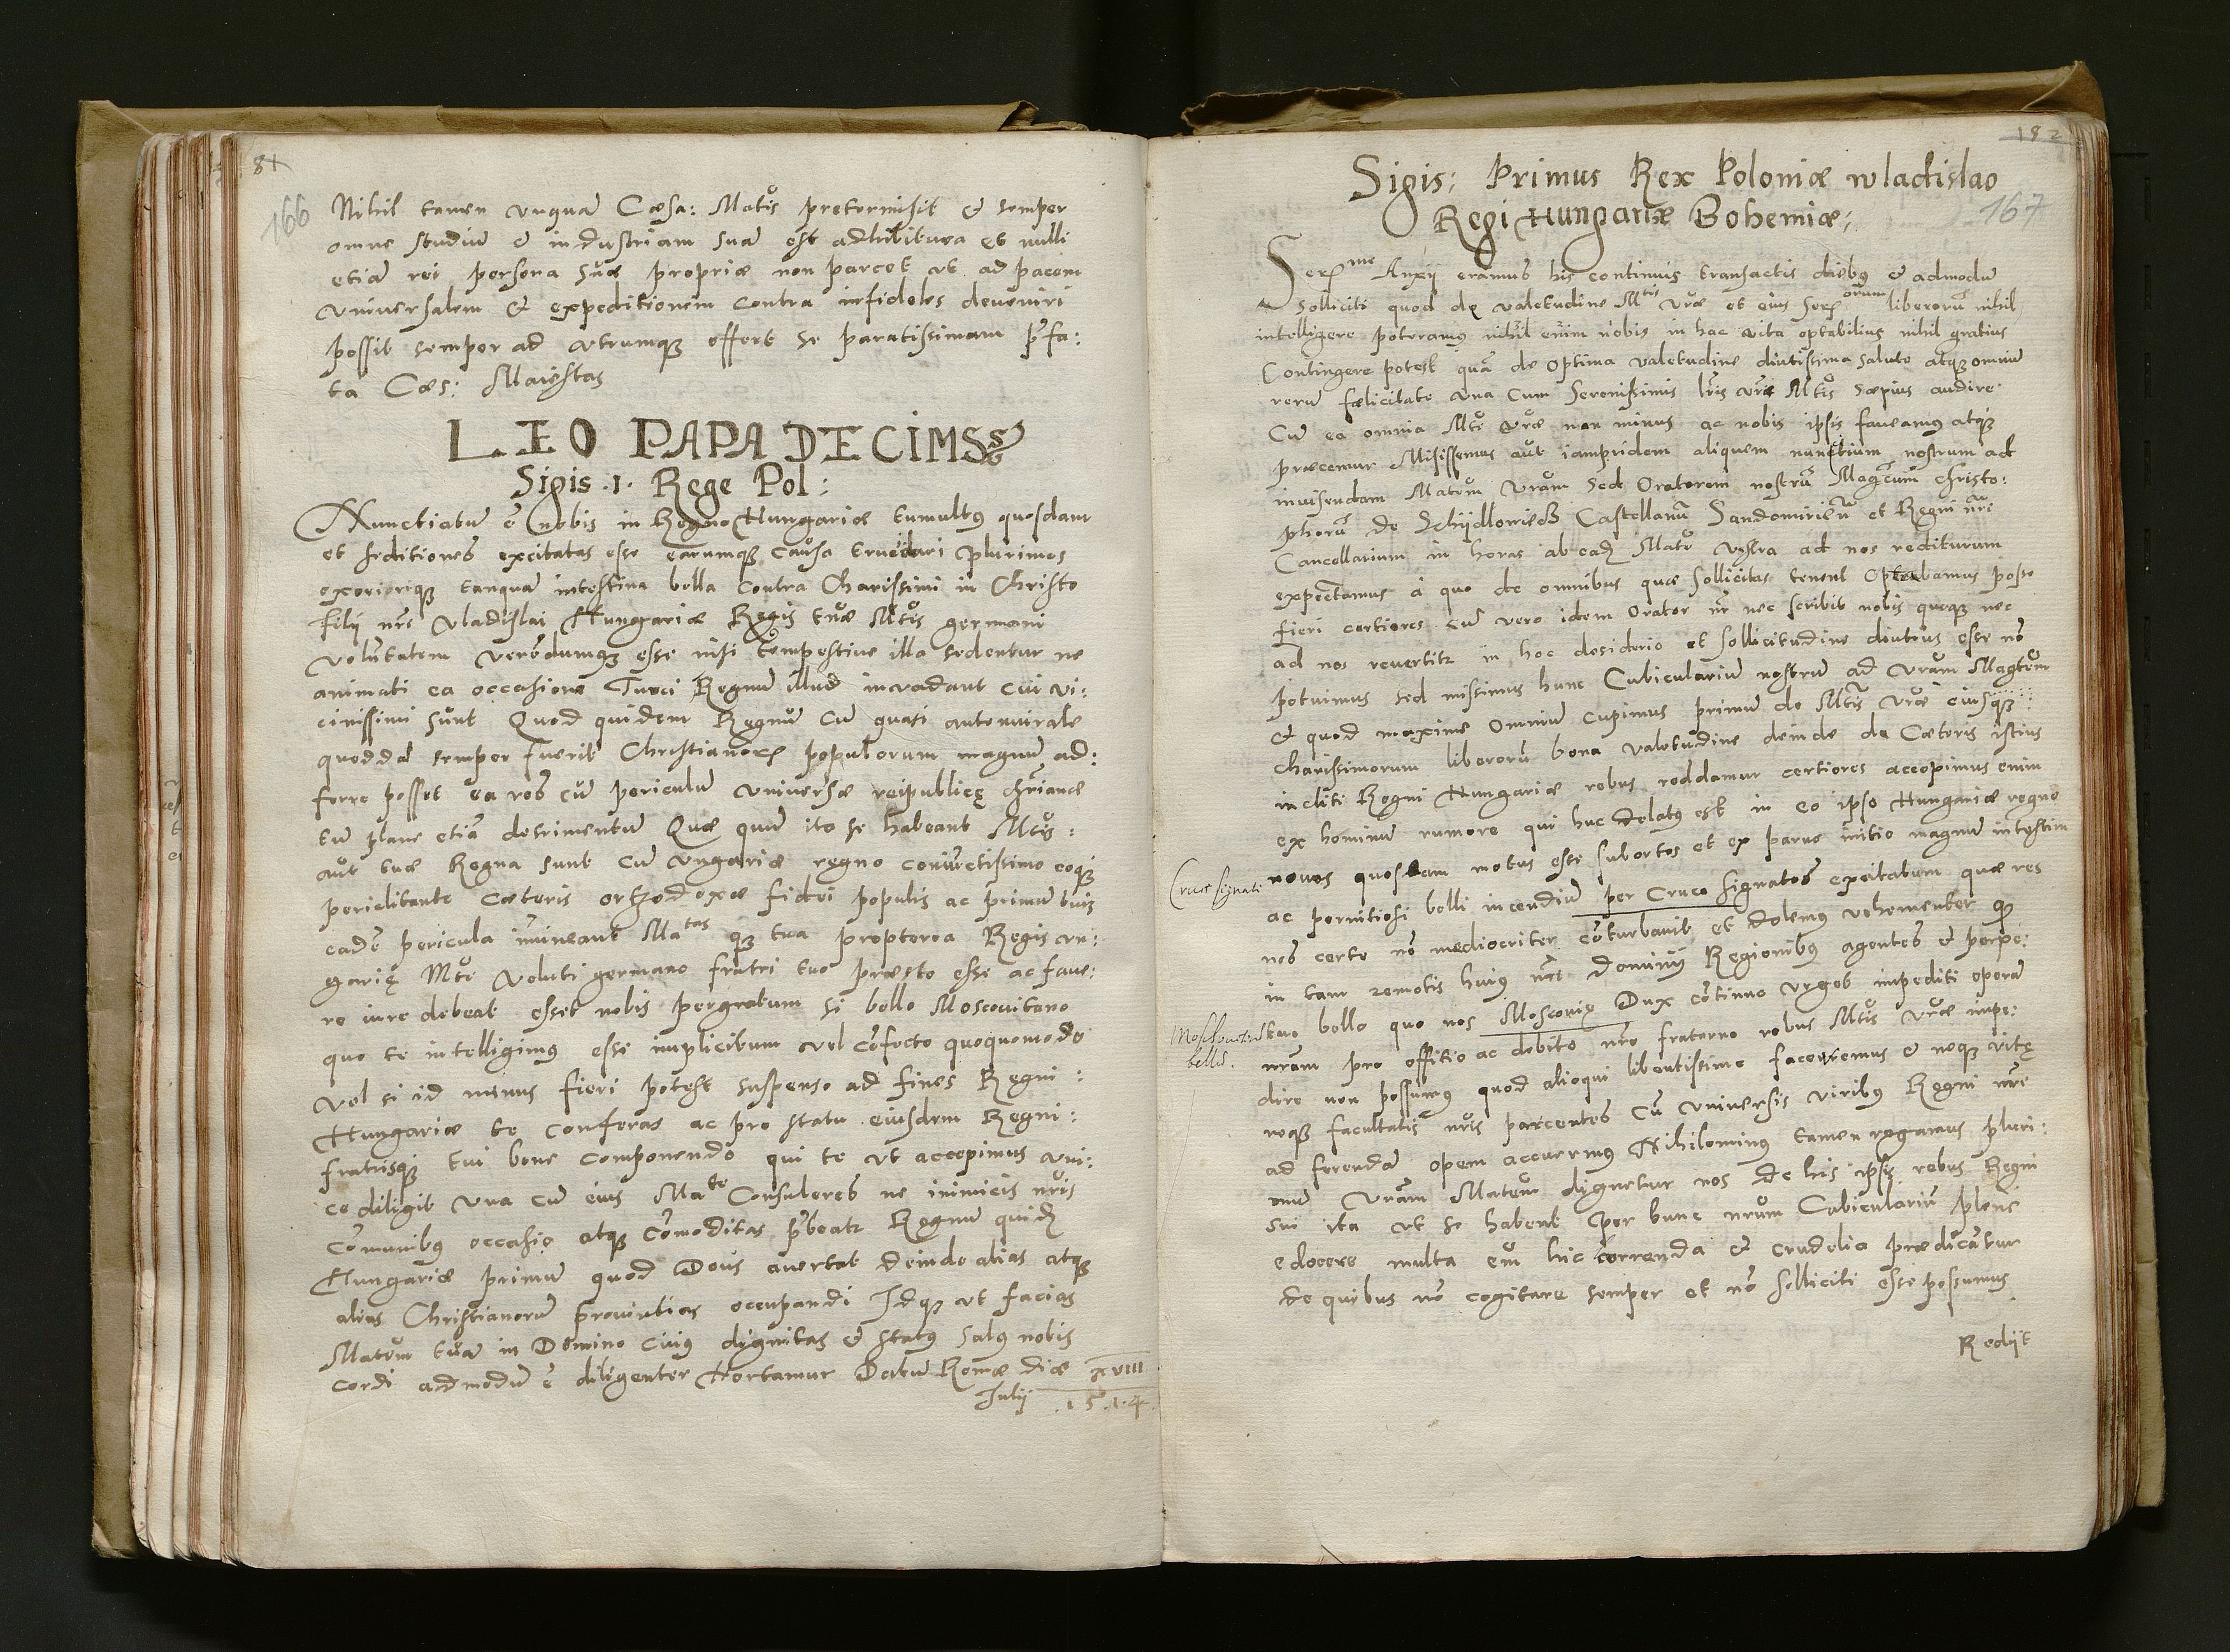 81
166
Nihil tamen unquā Cæsa: Matis pretermisit & semper
omne studiū & industriam suā est adhibitura et nulli
etiā rei persona suæ propriæ non parcet ut ad pacem
universalem & expeditionem contra infideles deveniri
possit semper ad utrumq; offert se paratissimam p̄fa:
ta Cæs: Maiestas
LEO PAPA DECIMS
Sigis .1. Rege Pol:
Nunctiatū ē nobis in Regno Hungariæ tumultus quosdam
et seditiones excitatas esse earumq; causa trucidari plurimos
exoririq; tanquā intestina bella contra Charissimi in Christo
filij nr̄i Vladislai Hungariæ Regis tuæ Mtis germani
volūtatem verendumq; esse nisi tempestive illa sedentur ne
animati ea occasione Turci Regnū illud invadant cui vi:
cinissimi sunt Quod quidem Regnū cū quasi antemurale
quoddā semper fuerit Christianorū populorum magnū ad:
ferre posset ea res cū periculū universæ reipublicę chrīanæ
tū plane etiā detrimentum Quæ quū ita se habeant Mtis:
aut tuæ Regna sunt cū Ungariæ regno coniūctissimo eoq;
periclitante cæteris ortzodoxæ fidei populis ac primū tuis
eadē pericula īmineant Matas q; tua propterea Regis un:
garię Mti veluti germano fratri tuo præsto esse ac fave:
re iure debeat esset nobis pergratum si bello Moscovitano
quo te intelligimus esse implicitum vel cōfecto quoquomodo
vel si id minus fieri potest suspenso ad fines Regni:
Hungariæ te conferas ac pro statu eiusdem Regni:
fratrisq; tui bene componendo qui te ut accepimus uni:
ce diligit una cū eius Mate Consuleres ne inimicis nr̄is
cōmunibus occasio atq; cōmoditas p̄beatr Regnū quidē
Hungariæ primū quod Deus avertat deinde alias atq;
alias Christianorū provintias occupandi Idq; ut facias
Matem tuā in Domino cuius dignitas & status salus nobis
cordi admodū ē diligenter Hortamur Datū Romæ die xviii
Julij .1514.
182
167
Sigis: Primus Rex Poloniæ wladislao
Regi Hungariæ Bohemiæ;
Serme Anxij eramus his continuis transactis diebus & admodū
solliciti quod de valetudine Mtis vr̄æ et eius Serorum liberorū nihil
intelligere poteramus nihil enim nobis in hac vita optabilius nihil gratius
Contingere potest quā de optima valetudine diutissima salute atq; omniū
rerū fælicitate una cum Serenissimis lr̄is vr̄æ Mtis sæpius audire
Cū ea omnia Mti vr̄æ non minus ac nobis ipsis faveamus atq;
præcemur Misissemus aut iampridem aliquem nunctium nostrum ad
invisendam Matem vram sed Oratorem nostrū Magcum christo:
phorū de Schijdlowiecz Castellanū Sandomirieñ et Regni nr̄i
Cancellarium in horas ab eadē Mate vestra ad nos rediturum
expectamus à quo de omnibus quæ sollicitas tenent optabamus posse
fieri certiores cū vero idem Orator nr̄ nec scribit nobis quoq; nec
ad nos revertitr in hoc desiderio et sollicitudine diutius esse nō
potuimus sed missimus hunc Cubiculariū nostrum ad vram Magtem
& quod maxime omniū cupimus primū de Mtis vr̄æ eiusq;
charissimorum liberorū bona valetudine deinde de cæteris istius
incliti Regni Hungariæ rebus reddamur certiores accepimus enim
ex hominū rumore qui huc delatus est in eo ipso Hungariæ regno
Cruce signati
novos quosdam motus esse subortos et ex parvo initio magnū intestin
ac pernitiosi belli incendiū per Cruce signatos excitatum quæ res
nos certe nō mediocriter cōturbavit et dolemus vehementer q;
in tam remotis huius nr̄i Dominij Regionibus agentes & perpe:
Moschovitanū
bellū.
tuo bello quo nos Moscovię Dux cōtinuo urget impediti operā
nrām pro offitio ac debito nr̄o fraterno rebus Mtis vr̄æ impe:
dire non possumus quod alioqui libentissime faceremus & neq; vitę
neq; facultatis nr̄is parcentes cū universis viribus Regni nr̄i
ad ferendā opem accurrimus Nihilominus tamen rogamus pluri:
mum Vrām Matem dignetur nos de his ipsis rebus Regni
sui ita ut se habent per hunc nrum Cubiculariū plene
edocere multa em̄ hic horrenda & crudelia prædicātur
de quibus nō cogitare semper et nō solliciti esse possumus
Redijt